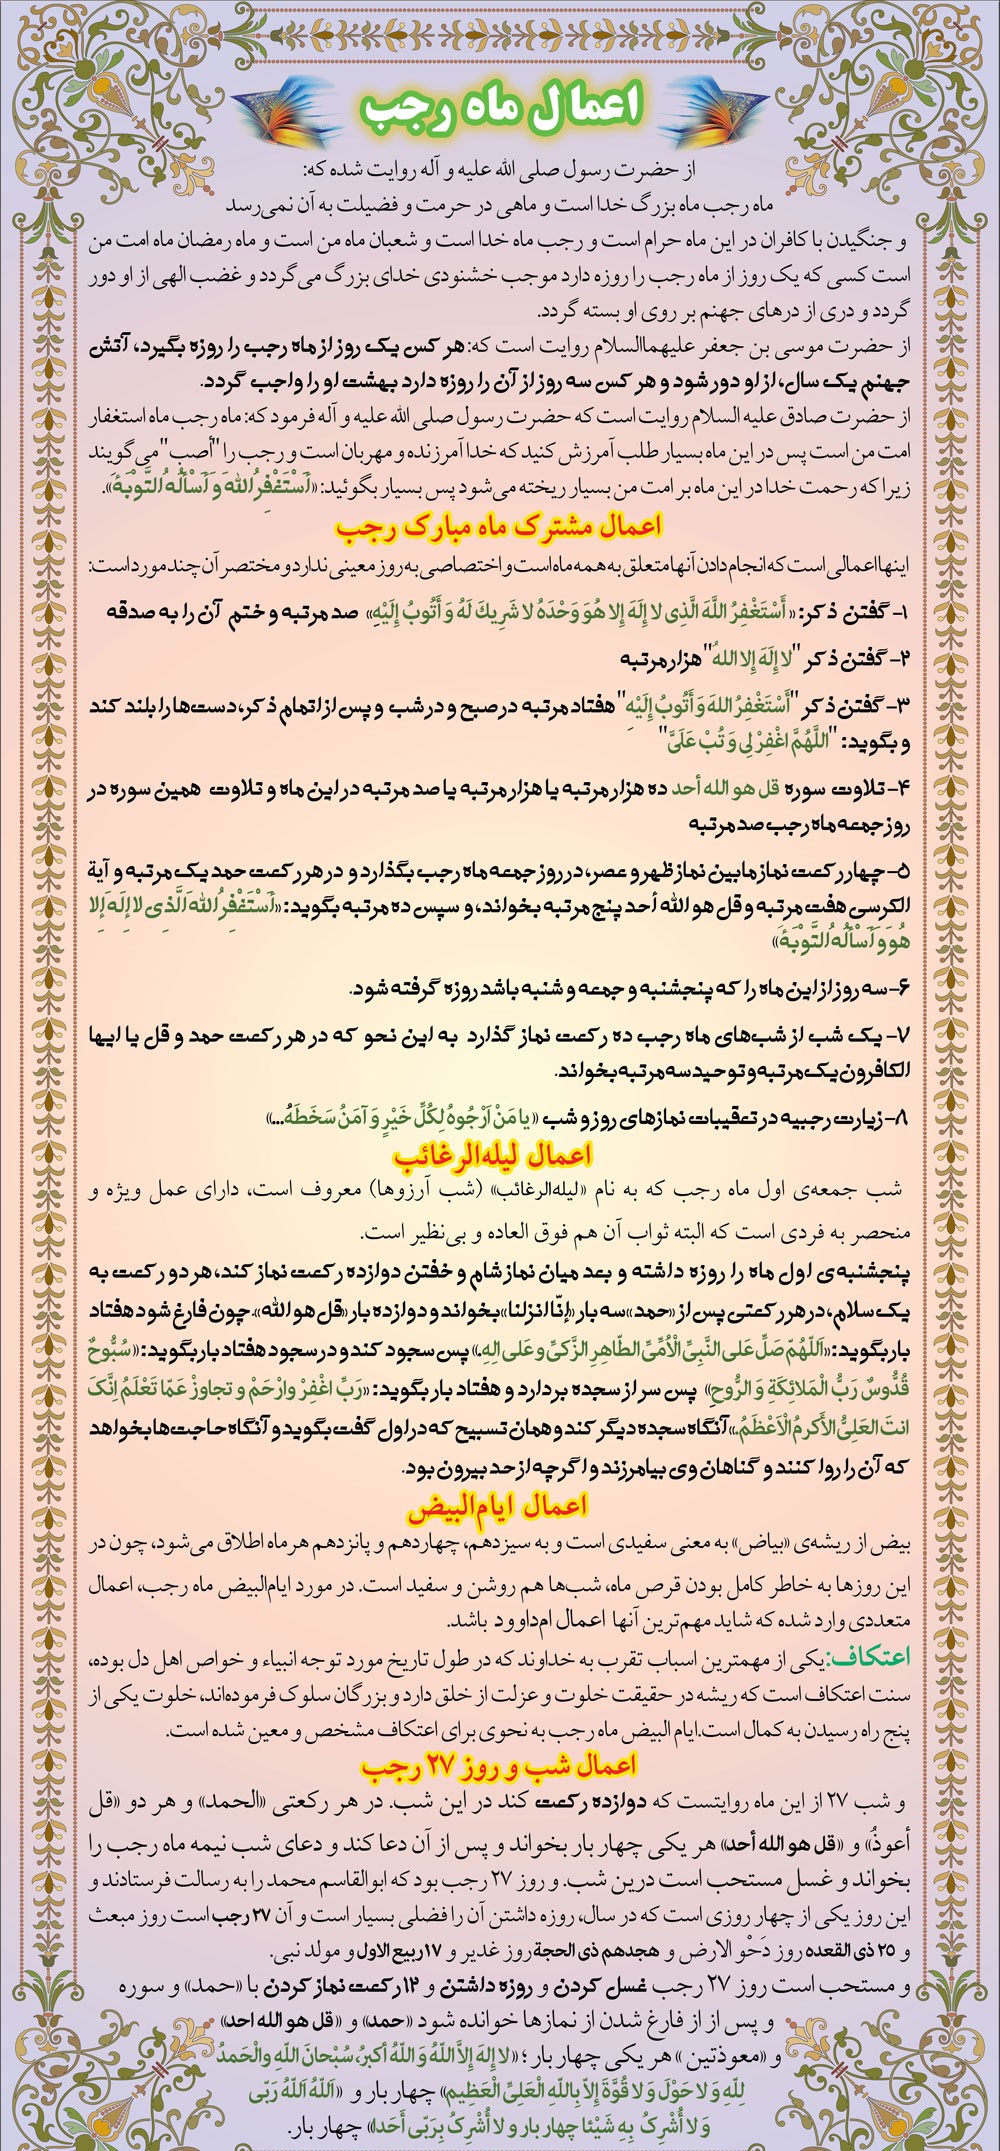 اعمال ماه رجب
از حضرت رسول صلی الله علیه و آله روایت شده که:
ماه رجب ماه بزرگ خدا است و ماهی در حرمت و فضیلت به آن نمی‌رسد
و جنگیدن با کافران در این ماه حرام است و رجب ماه خدا است و شعبان ماه من است و ماه رمضان ماه امت من
است کسی که یک روز از ماه رجب را روزه دارد موجب خشنودی خدای بزرگ می‌گردد و غضب الهی از او دور
گردد و دری از درهای جهنم بر روی او بسته گردد.
از حضرت موسی بن جعفر علیهماالسلام روایت است که: هر کس یک روز از ماه رجب را روزه بگیرد، آتش
جهنم یک سال، از او دور شود و هر کس سه روز از آن را روزه دارد بهشت او را واجب گردد.
از حضرت صادق علیه السلام روایت است که حضرت رسول صلی الله علیه و آله فرمود که: ماه رجب ماه استغفار
امت من است پس در این ماه بسیار طلب آمرزش کنید که خدا آمرزنده و مهربان است و رجب را "أصب" می‌گویند
زیرا که رحمت خدا در این ماه بر امت من بسیار ریخته می‌شود پس بسیار بگوئید: «أَسْتَغْفِرُ اللهَ وَ أَسْأَلُهُ التَّوْبَةَ».
اعمال مشترک ماه مبارک رجب
اینها اعمالی است که انجام دادن آنها متعلق به همه ماه است و اختصاصی به روز معینی ندارد و مختصر آن چند مورد است:
۱- گفتن ذکر: «أَسْتَغْفِرُ اللَّهَ الَّذِی لا إِلَهَ إِلا هُوَ وَحْدَهُ لا شَرِیكَ لَهُ وَ أَتُوبُ إِلَیْهِ» صد مرتبه و ختم آن را به صدقه
۲- گفتن ذکر "لا إِلَهَ إِلا اللهُ" هزار مرتبه
۳- گفتن ذکر "أَسْتَغْفِرُ اللهَ وَ أَتُوبُ إِلَیْهِ" هفتاد مرتبه در صبح و در شب و پس از اتمام ذکر، دست‌ها را بلند کند
و بگوید: "اللَّهُمَّ اغْفِرْ لِی وَ تُبْ عَلَیَّ"
۴- تلاوت سوره قل هو الله أحد ده هزار مرتبه یا هزار مرتبه یا صد مرتبه در این ماه و تلاوت همین سوره در
روز جمعه ماه رجب صد مرتبه
۵- چهار رکعت نماز مابین نماز ظهر و عصر، در روز جمعه ماه رجب بگذارد و در هر رکعت حمد یک مرتبه و آیة
الکرسی هفت مرتبه و قل هو الله أحد پنج مرتبه بخواند، و سپس ده مرتبه بگوید: «أَسْتَغْفِرُ اللهَ الَّذِی لا إِلَهَ إِلا
هُوَ وَ أَسْأَلُهُ التَّوْبَةَ»
۶- سه روز از این ماه را که پنجشنبه و جمعه و شنبه باشد روزه گرفته شود.
۷- یک شب از شب‌های ماه رجب ده رکعت نماز گذارد به این نحو که در هر رکعت حمد و قل یا ایها
الکافرون یک مرتبه و توحید سه مرتبه بخواند.
۸- زیارت رجبیه در تعقیبات نمازهای روز و شب «یا مَنْ أَرْجُوهُ لِکُلِّ خَیْرٍ وَ آمَنُ سَخَطَهُ...»
اعمال لیله‌الرغائب
شب جمعه‌ی اول ماه رجب که به نام «لیله‌الرغائب» (شب آرزوها) معروف است، دارای عمل ویژه و
منحصر به فردی است که البته ثواب آن هم فوق العاده و بی‌نظیر است.
پنجشنبه‌ی اول ماه را روزه داشته و بعد میان نماز شام و خفتن دوازده رکعت نماز کند، هر دو رکعت به
یک سلام، در هر رکعتی پس از «حمد» سه بار «إنّا انزلنا» بخواند و دوازده بار «قل هو الله». چون فارغ شود هفتاد
بار بگوید: «اَللّهُمّ صَلِّ عَلی النَّبِیِّ الْاُمِّیِّ الطّاهِرِ الزَّکیِّ و عَلی الِهِ.» پس سجود کند و در سجود هفتاد بار بگوید: «سُبُّوحٌ
قُدُّوسٌ رَبُّ الْمَلائِکَةِ وَ الرُّوحِ» پس سر از سجده بردارد و هفتاد بار بگوید: «رَبِّ اغْفِرْ وارْحَمْ و تجاوزْ عَمّا تَعْلَمُ اِنَّکَ
انتَ العَلِیُّ الأَکرمُ الْاَعْظَمُ.» آنگاه سجده دیگر کند و همان تسبیح که در اول گفت بگوید و آنگاه حاجت‌ها بخواهد
که آن را روا کنند و گناهان وی بیامرزند و اگر چه از حد بیرون بود.
اعمال ایام‌البیض
بیض از ریشه‌ی «بیاض» به معنی سفیدی است و به سیزدهم، چهاردهم و پانزدهم هرماه اطلاق می‌شود، چون در
این روزها به خاطر کامل بودن قرص ماه، شب‌ها هم روشن و سفید است. در مورد ایام‌البیض ماه رجب، اعمال
متعددی وارد شده که شاید مهم‌ترین آنها اعمال ام‌داوود باشد.
اعتکاف: یکی از مهمترین اسباب تقرب به خداوند که در طول تاریخ مورد توجه انبیاء و خواص اهل دل بوده،
سنت اعتکاف است که ریشه در حقیقت خلوت و عزلت از خلق دارد و بزرگان سلوک فرموده‌اند، خلوت یکی از
پنج راه رسیدن به کمال است. ایام البیض ماه رجب به نحوی برای اعتکاف مشخص و معین شده است.
اعمال شب و روز ۲۷ رجب
و شب ۲۷ از این ماه روایتست که دوازده رکعت کند در این شب. در هر رکعتی «الحمد» و هر دو «قل
أعوذُ» و «قل هو الله أحد» هر یکی چهار بار بخواند و پس از آن دعا کند و دعای شب نیمه ماه رجب را
بخواند و غسل مستحب است درین شب. و روز ۲۷ رجب بود که ابوالقاسم محمد را به رسالت فرستادند و
این روز یکی از چهار روزی است که در سال، روزه داشتن آن را فضلی بسیار است و آن ۲۷ رجب است روز مبعث
و ۲۵ ذی القعده روز دَحْو الارض و هجدهم ذی الحجة روز غدیر و ۱۷ ربیع الاول و مولد نبی.
و مستحب است روز ۲۷ رجب غسل کردن و روزه داشتن و ۱۲ رکعت نماز کردن با «حمد» و سوره
و پس از از فارغ شدن از نمازها خوانده شود «حمد» و «قل هو الله احد»
و «معوذتین» هر یکی چهار بار؛ «لا إِلهَ إِلاَّ اللّهُ وَ اللّهُ أکبرُ، سُبْحانَ اللّهِ والْحَمدُ
لِلّهِ وَ لا حَوْلَ وَ لا قُوَّةَ إِلاّ بِاللّهِ الْعَلِیِّ الْعَظِیمِ» چهار بار و «اَللّهُ اَللّهُ رَبّی
وَ لا أُشْرِکُ بِهِ شَیْئا چهار بار و لا أُشْرِکُ بِرَبّی أَحَدا» چهار بار.